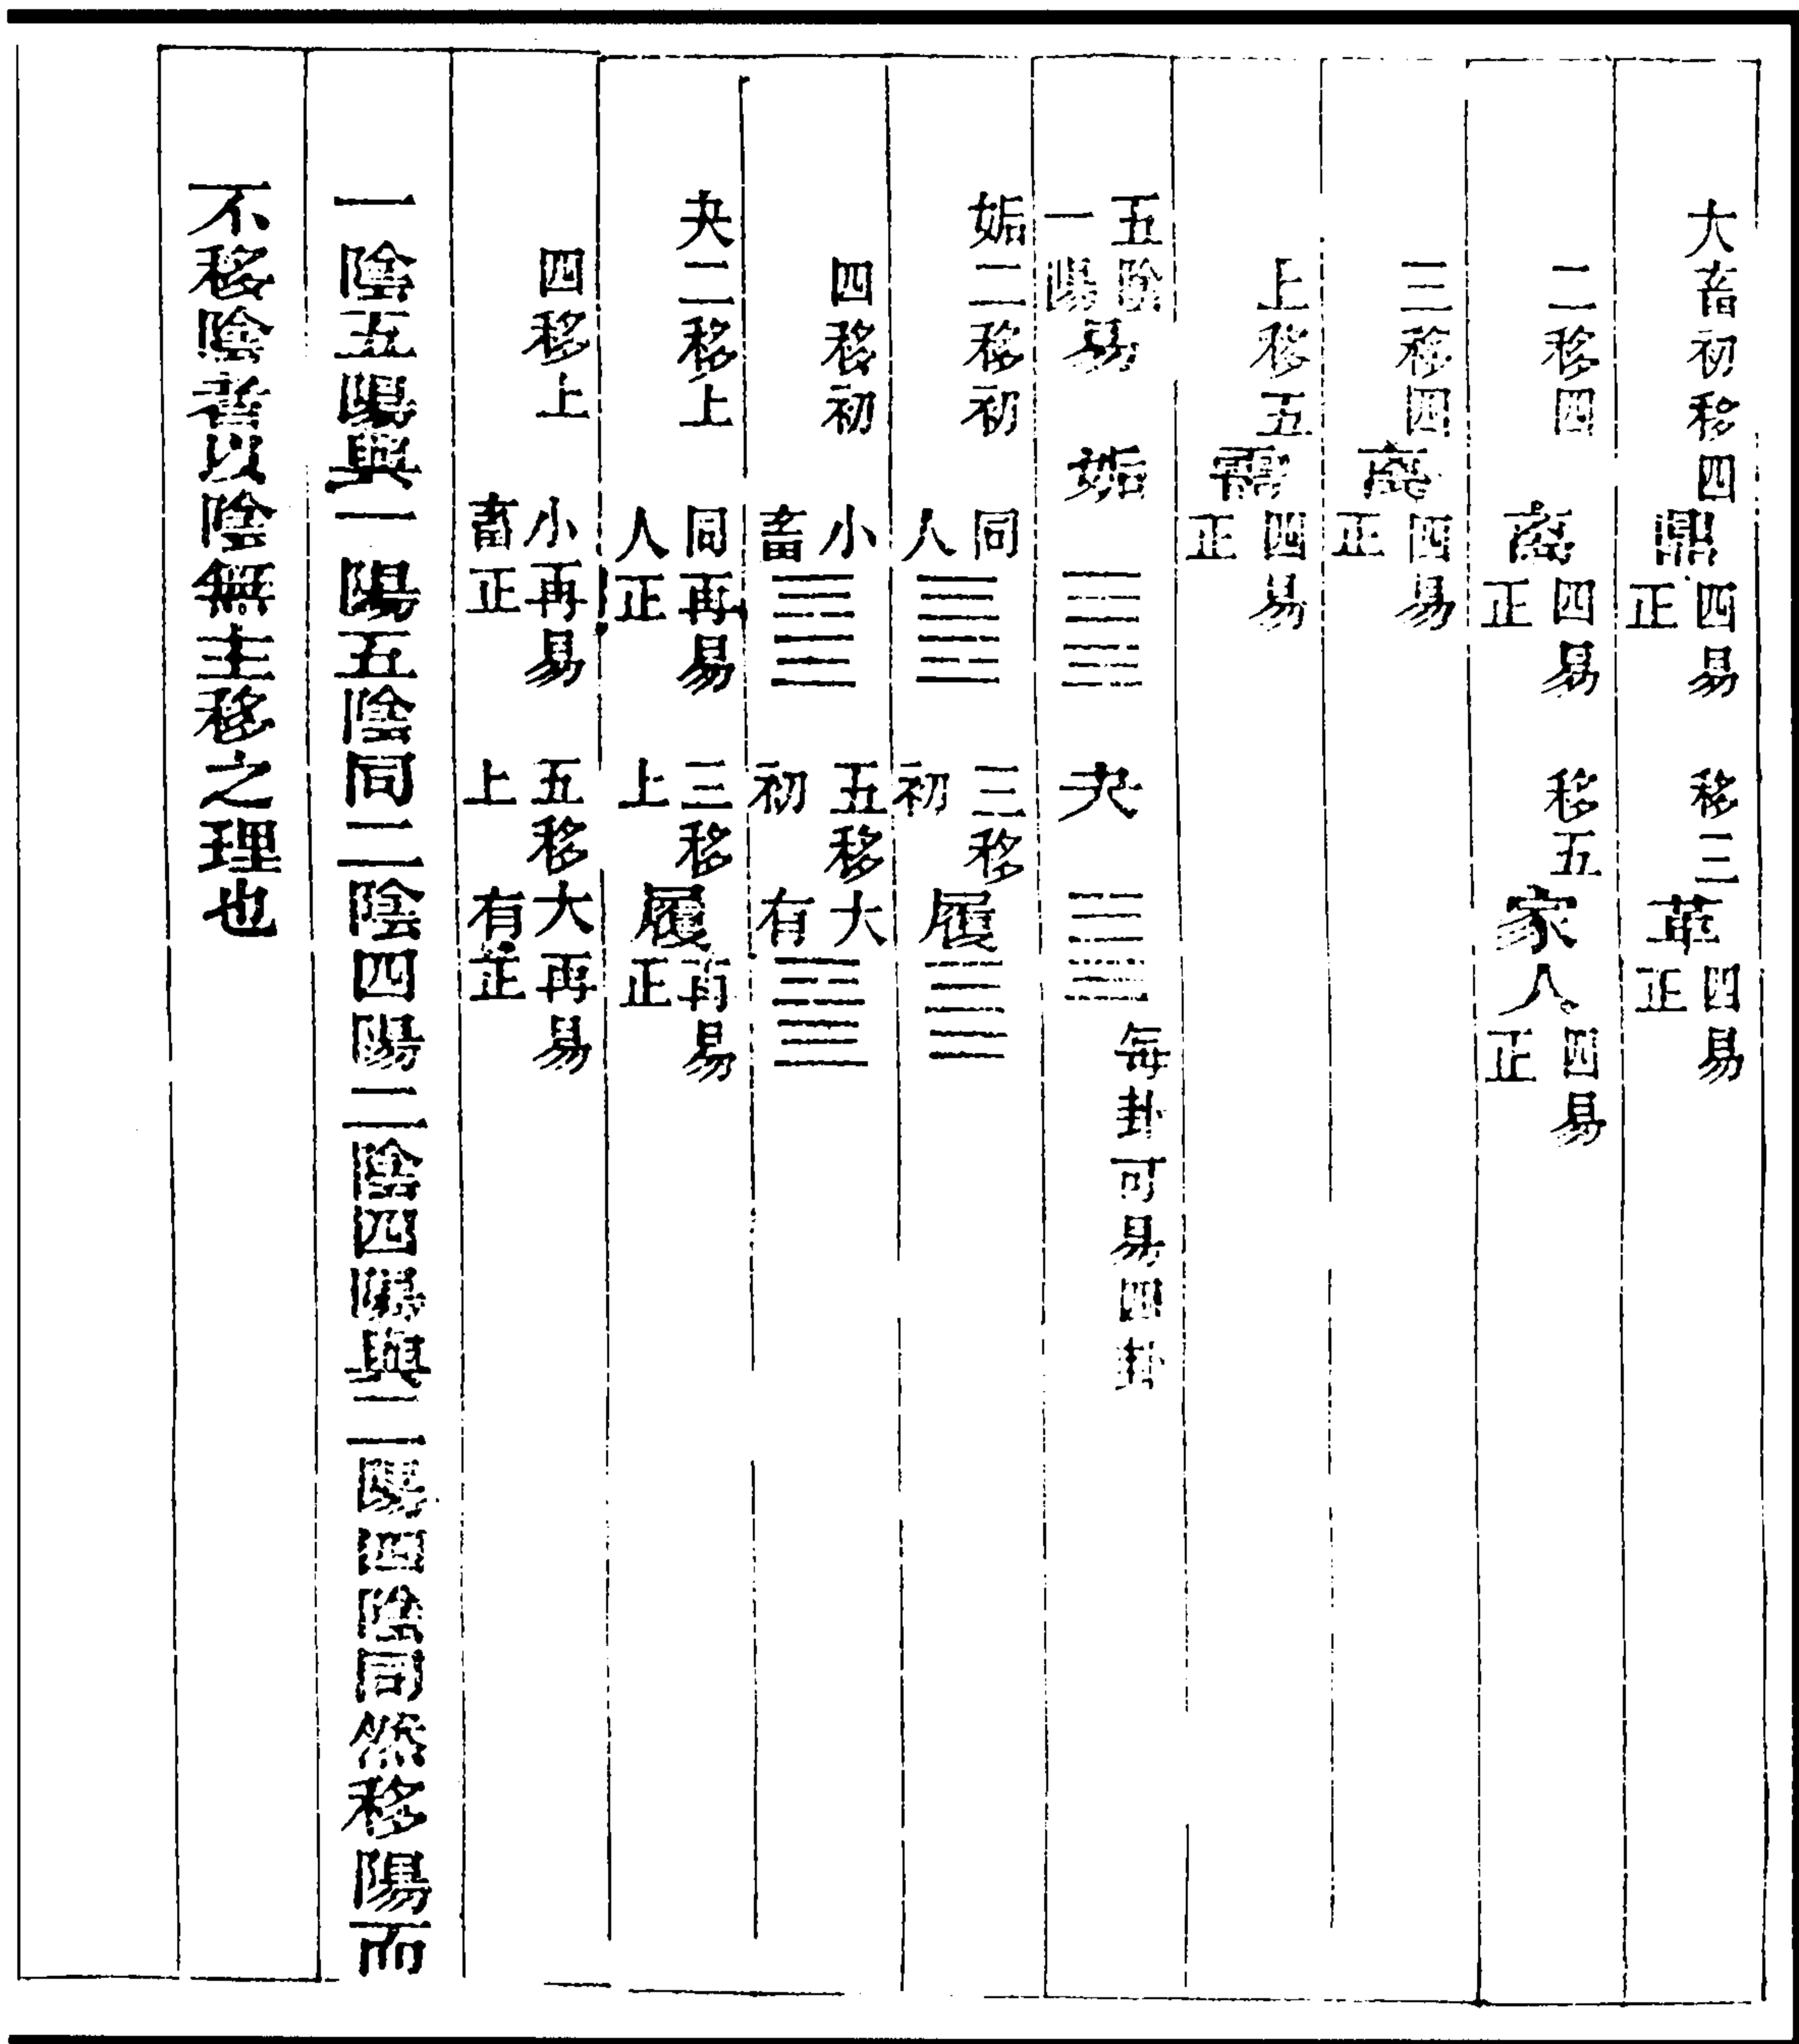 大畜初移四鼎四易正　移三革四易正
二移四离四易正　移五家人四易正
三移四离四易正
上移五需四易正
五陰一陽易　姤䷫　夬䷪每卦可易四卦
姤二移初　同人䷌　三移初　履䷉
四移初　小畜䷈　五移初　大有䷍
夬二移上　同人再易正　三移上　履再易正
四移上　小畜再易正　五移上　大有再易正
一陰五陽與一陽五陰同二陰四陽二陰四陽與二陽四陰同然移陽而
不移陰者以陰無主移之理也